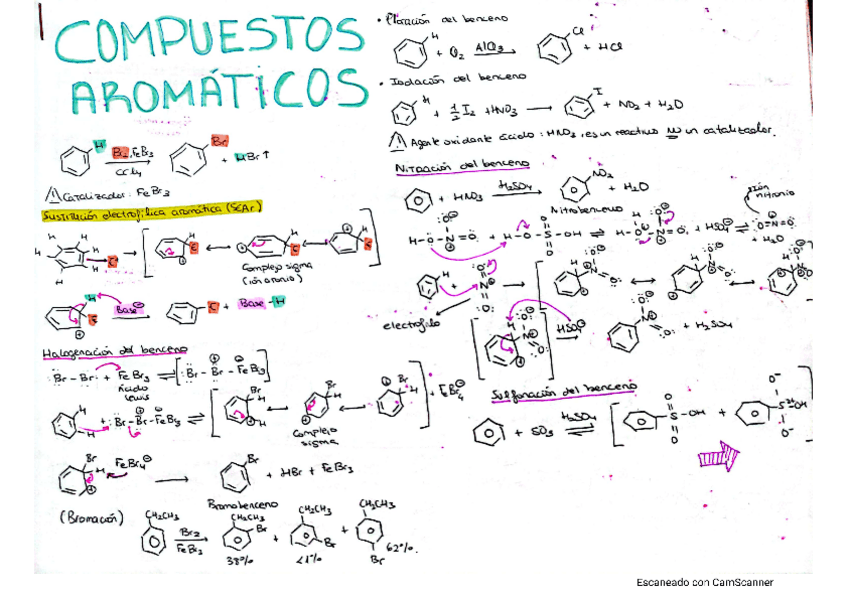 COMPUESTOS
AROMÁTICOS
H Br2, FeBr3 CCl4 Br + HBr ↑
⚠ Catalizador: FeBr3
Sustitución electrofílica aromática (SEAr)
Complejo sigma
H Base⊖ E + Base-H
Halogenación del benceno
Br-Br + FeBr3 ⇌ [Br-Br-FeBr3]
Ácido
Lewis
+ Br-Br-FeBr3 ⇌ + FeBr4⊖
Complejo
sigma
Br H FeBr4⊖ → Br + HBr + FeBr3
Bromobenceno
(Bromación) CH2CH3 Br2 FeBr3 CH2CH3 Br + CH2CH3 Br + CH2CH3 Br
38% <1% 62%.
del benceno
H + Cl2 AlCl3 → Cl + HCl
• del benceno
H + 1/2 I2 + HNO3 → I + NO2 + H2O
⚠ Agente oxidante ácido: HNO3, es un reactivo NO un catalizador.
Nitración del benceno
+ HNO3 H2SO4 → NO2 + H2O
Nitrobenceno
ión
nitronio
+ H2O
electrófilo
HSO4⊖ + H2SO4
Sulfonación del benceno
+ SO3 H2SO4 ⇌ S-OH + S OH
Escaneado con CamScanner